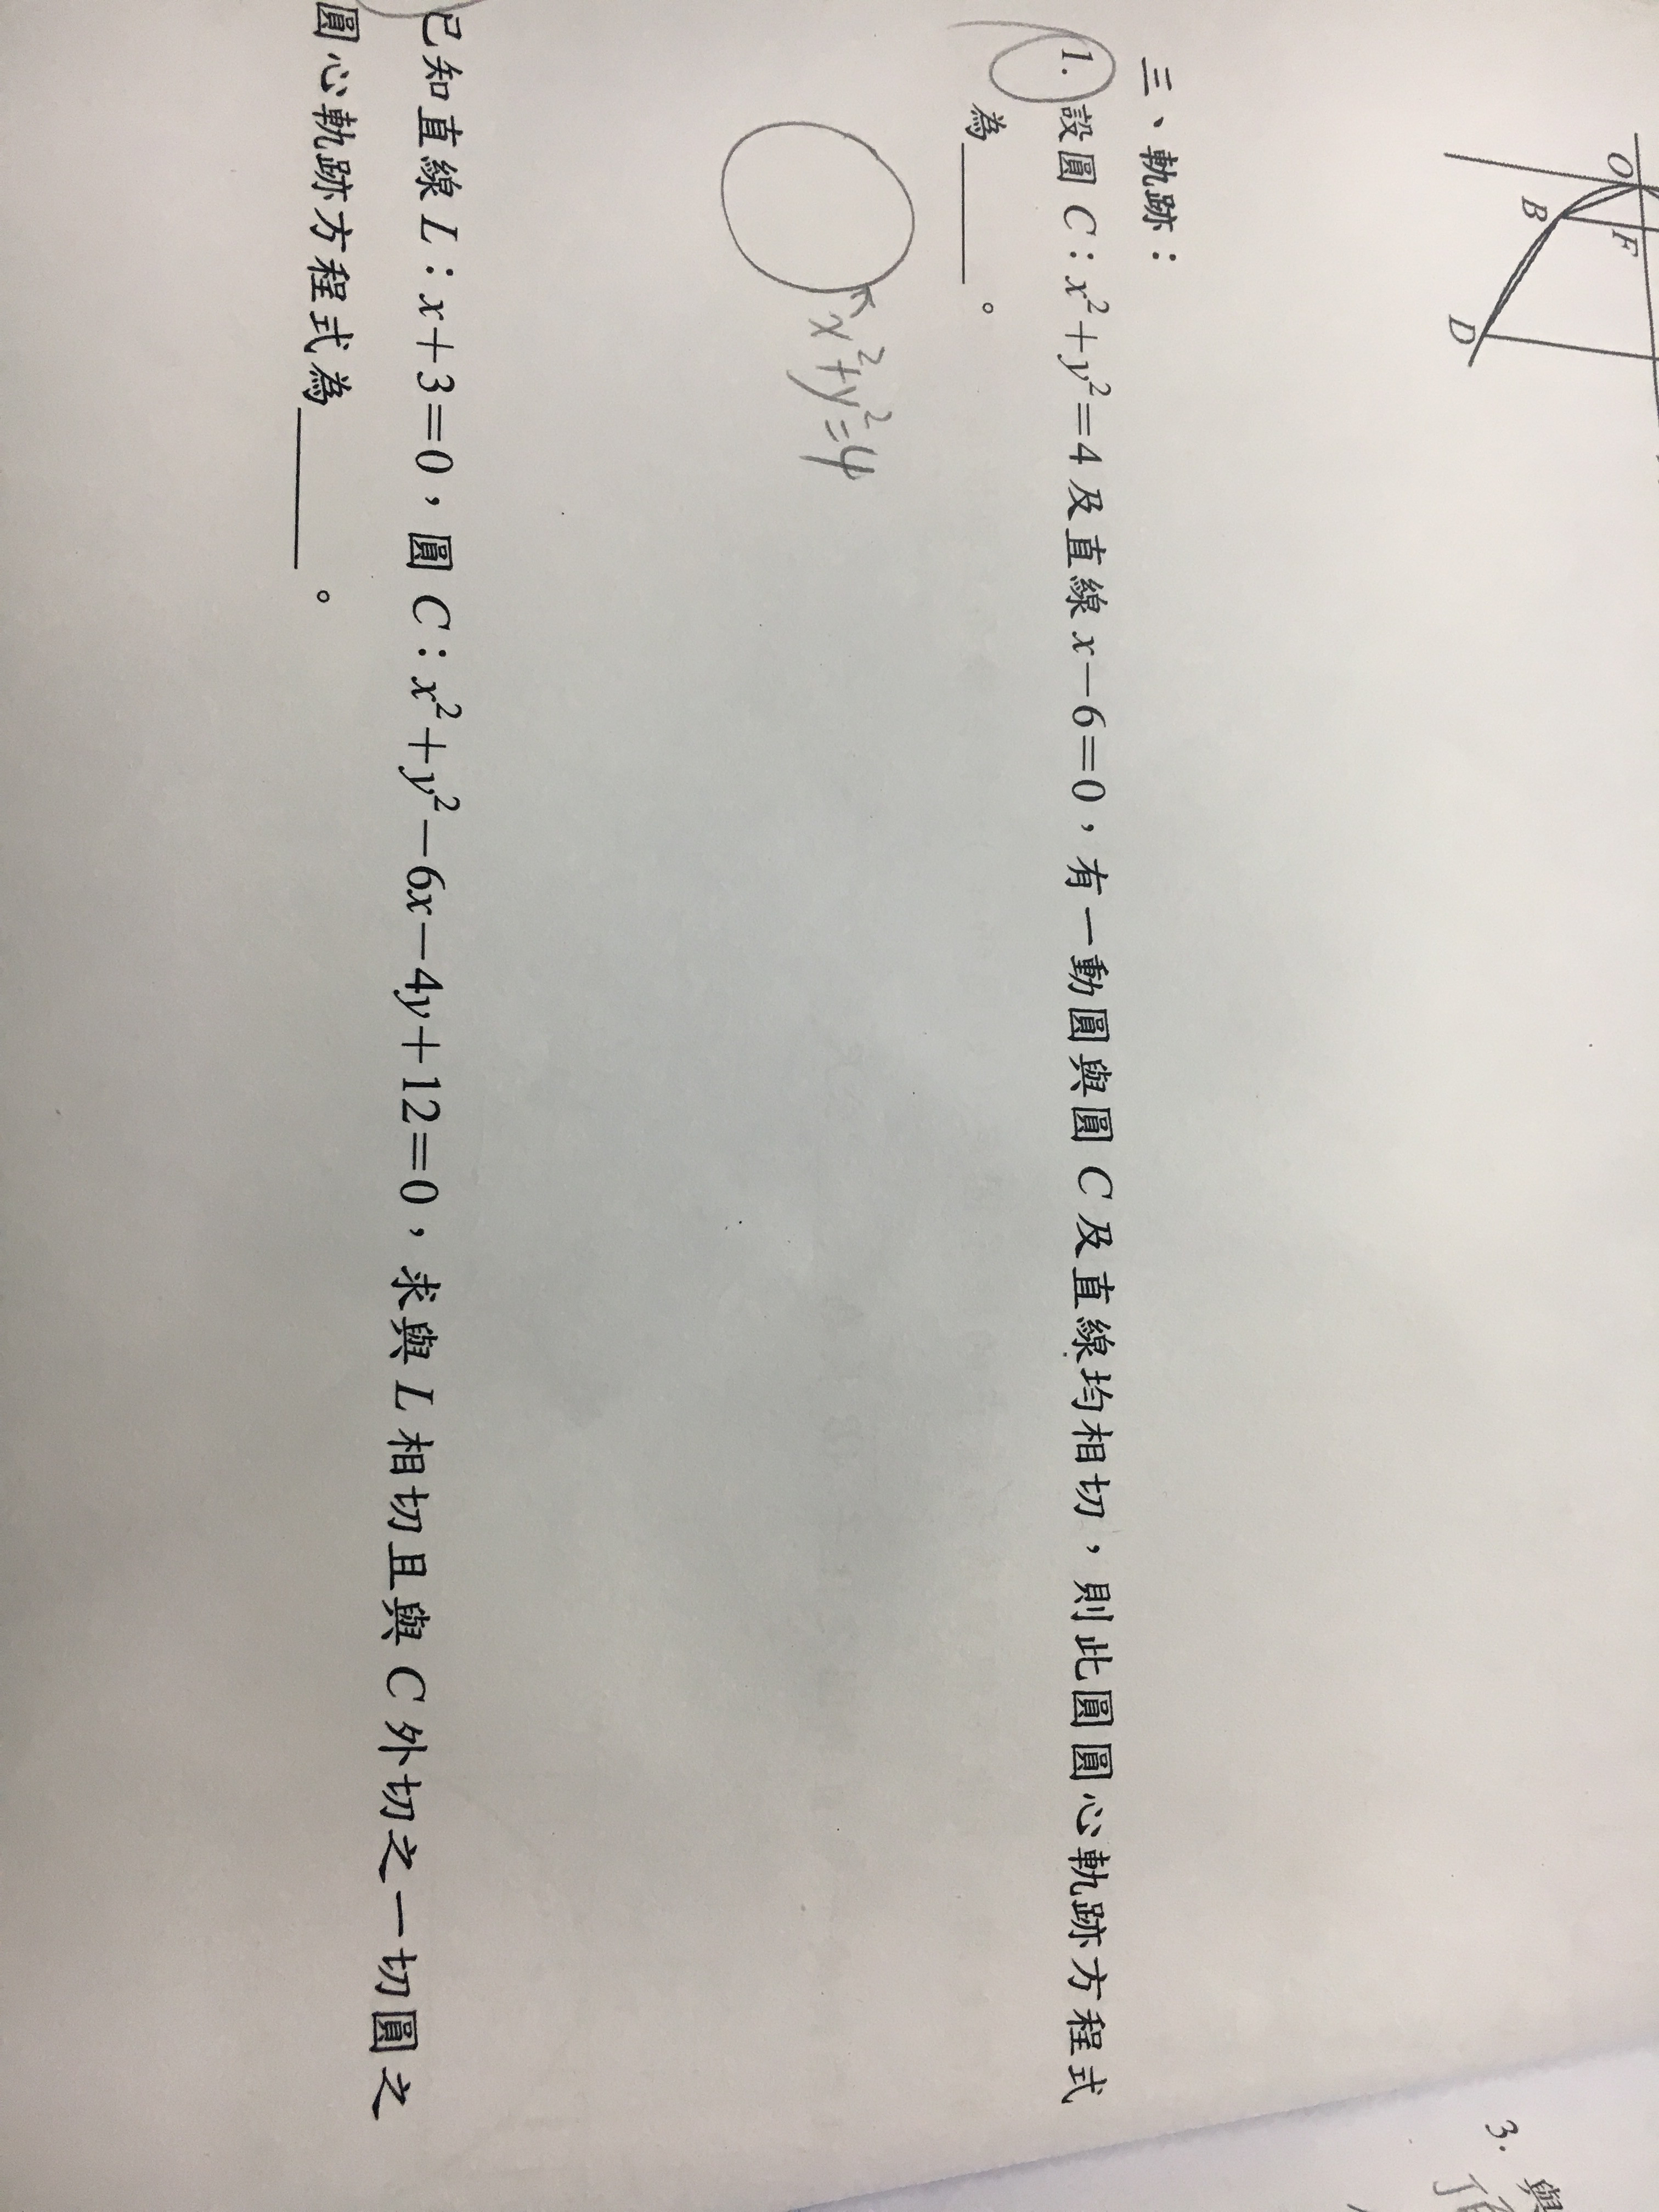 O
F
B
D
三、軌跡：
1. 設圓 C：x²+y²=4 及直線 x－6=0，有一動圓與圓 C 及直線均相切，則此圓圓心軌跡方程式
為＿＿＿＿。
x²+y²=4
已知直線 L：x+3=0，圓 C：x²+y²－6x－4y+12=0，求與 L 相切且與 C 外切之一切圓之
圓心軌跡方程式為＿＿＿＿。
3. 與